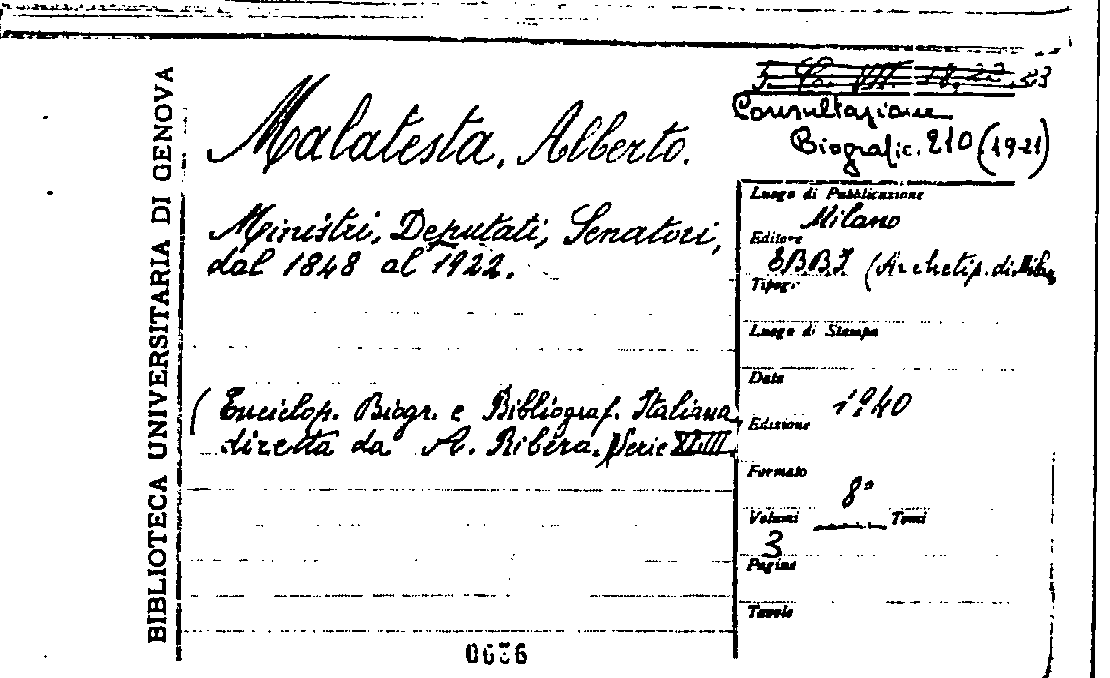 BIBLIOTECA UNIVERSITARIA DI GENOVA
Malatesta, Alberto.
Ministri, Deputati, Senatori,
dal 1848 al 1922.
(Enciclop. Biogr. e Bibliograf. Italiana
diretta da A. Ribera. Serie XLIII.
0636
Consultazione
Biografic. 210 (19-21)
Luogo di Pubblicazione
Milano
Editore
EBBI (Archetip. di Milano
Tipogr.
Luogo di Stampa
Data
1940
Edizione
Formato
8°
Volumi Tomi
3
Pagine
Tavole